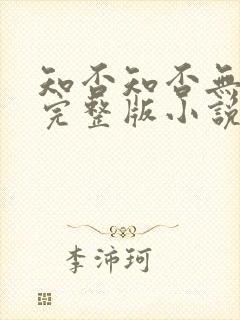 知否知否無
完整版小說
李沛珂